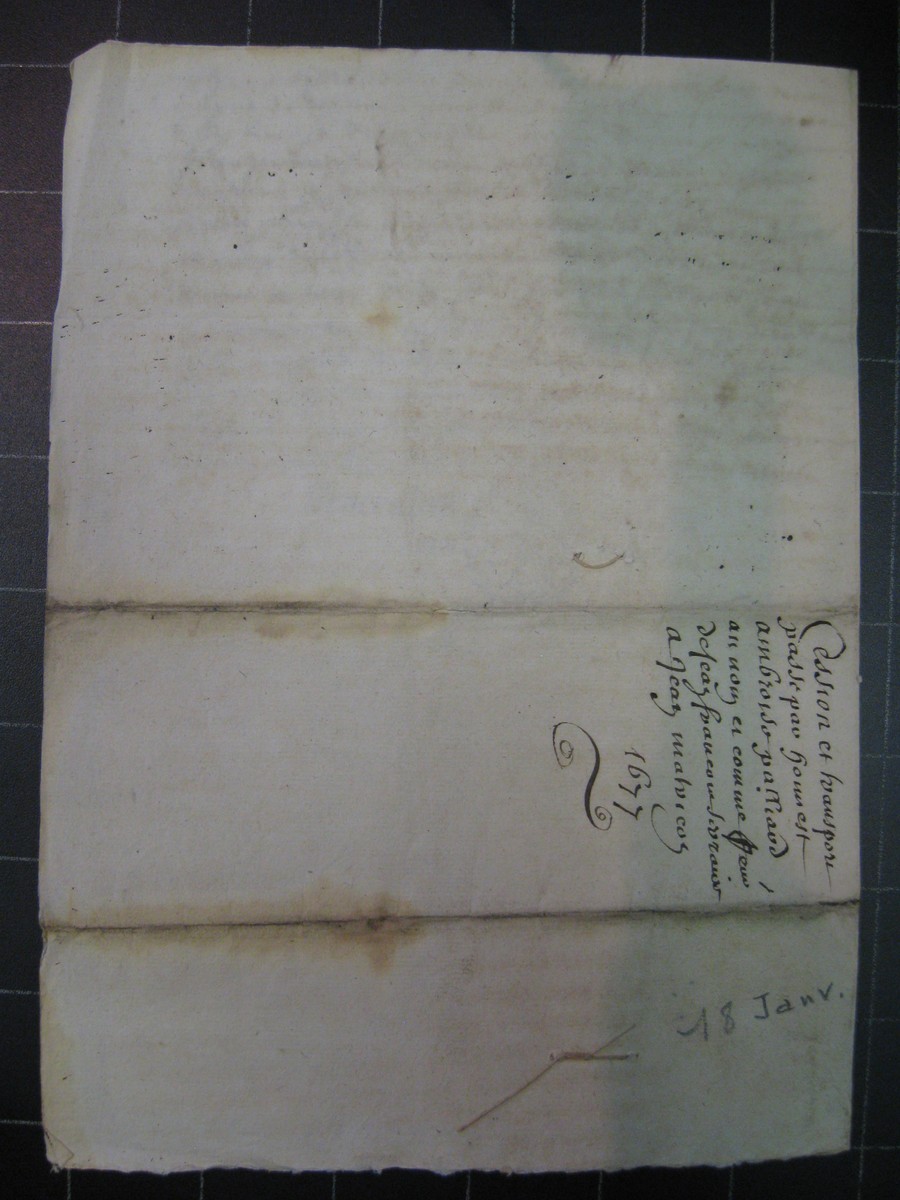 Cession et transport
passé par honnest
ambroise palliard
au nom et comme
de Jean francois
a Jean malvicon
1677
18 Janv.